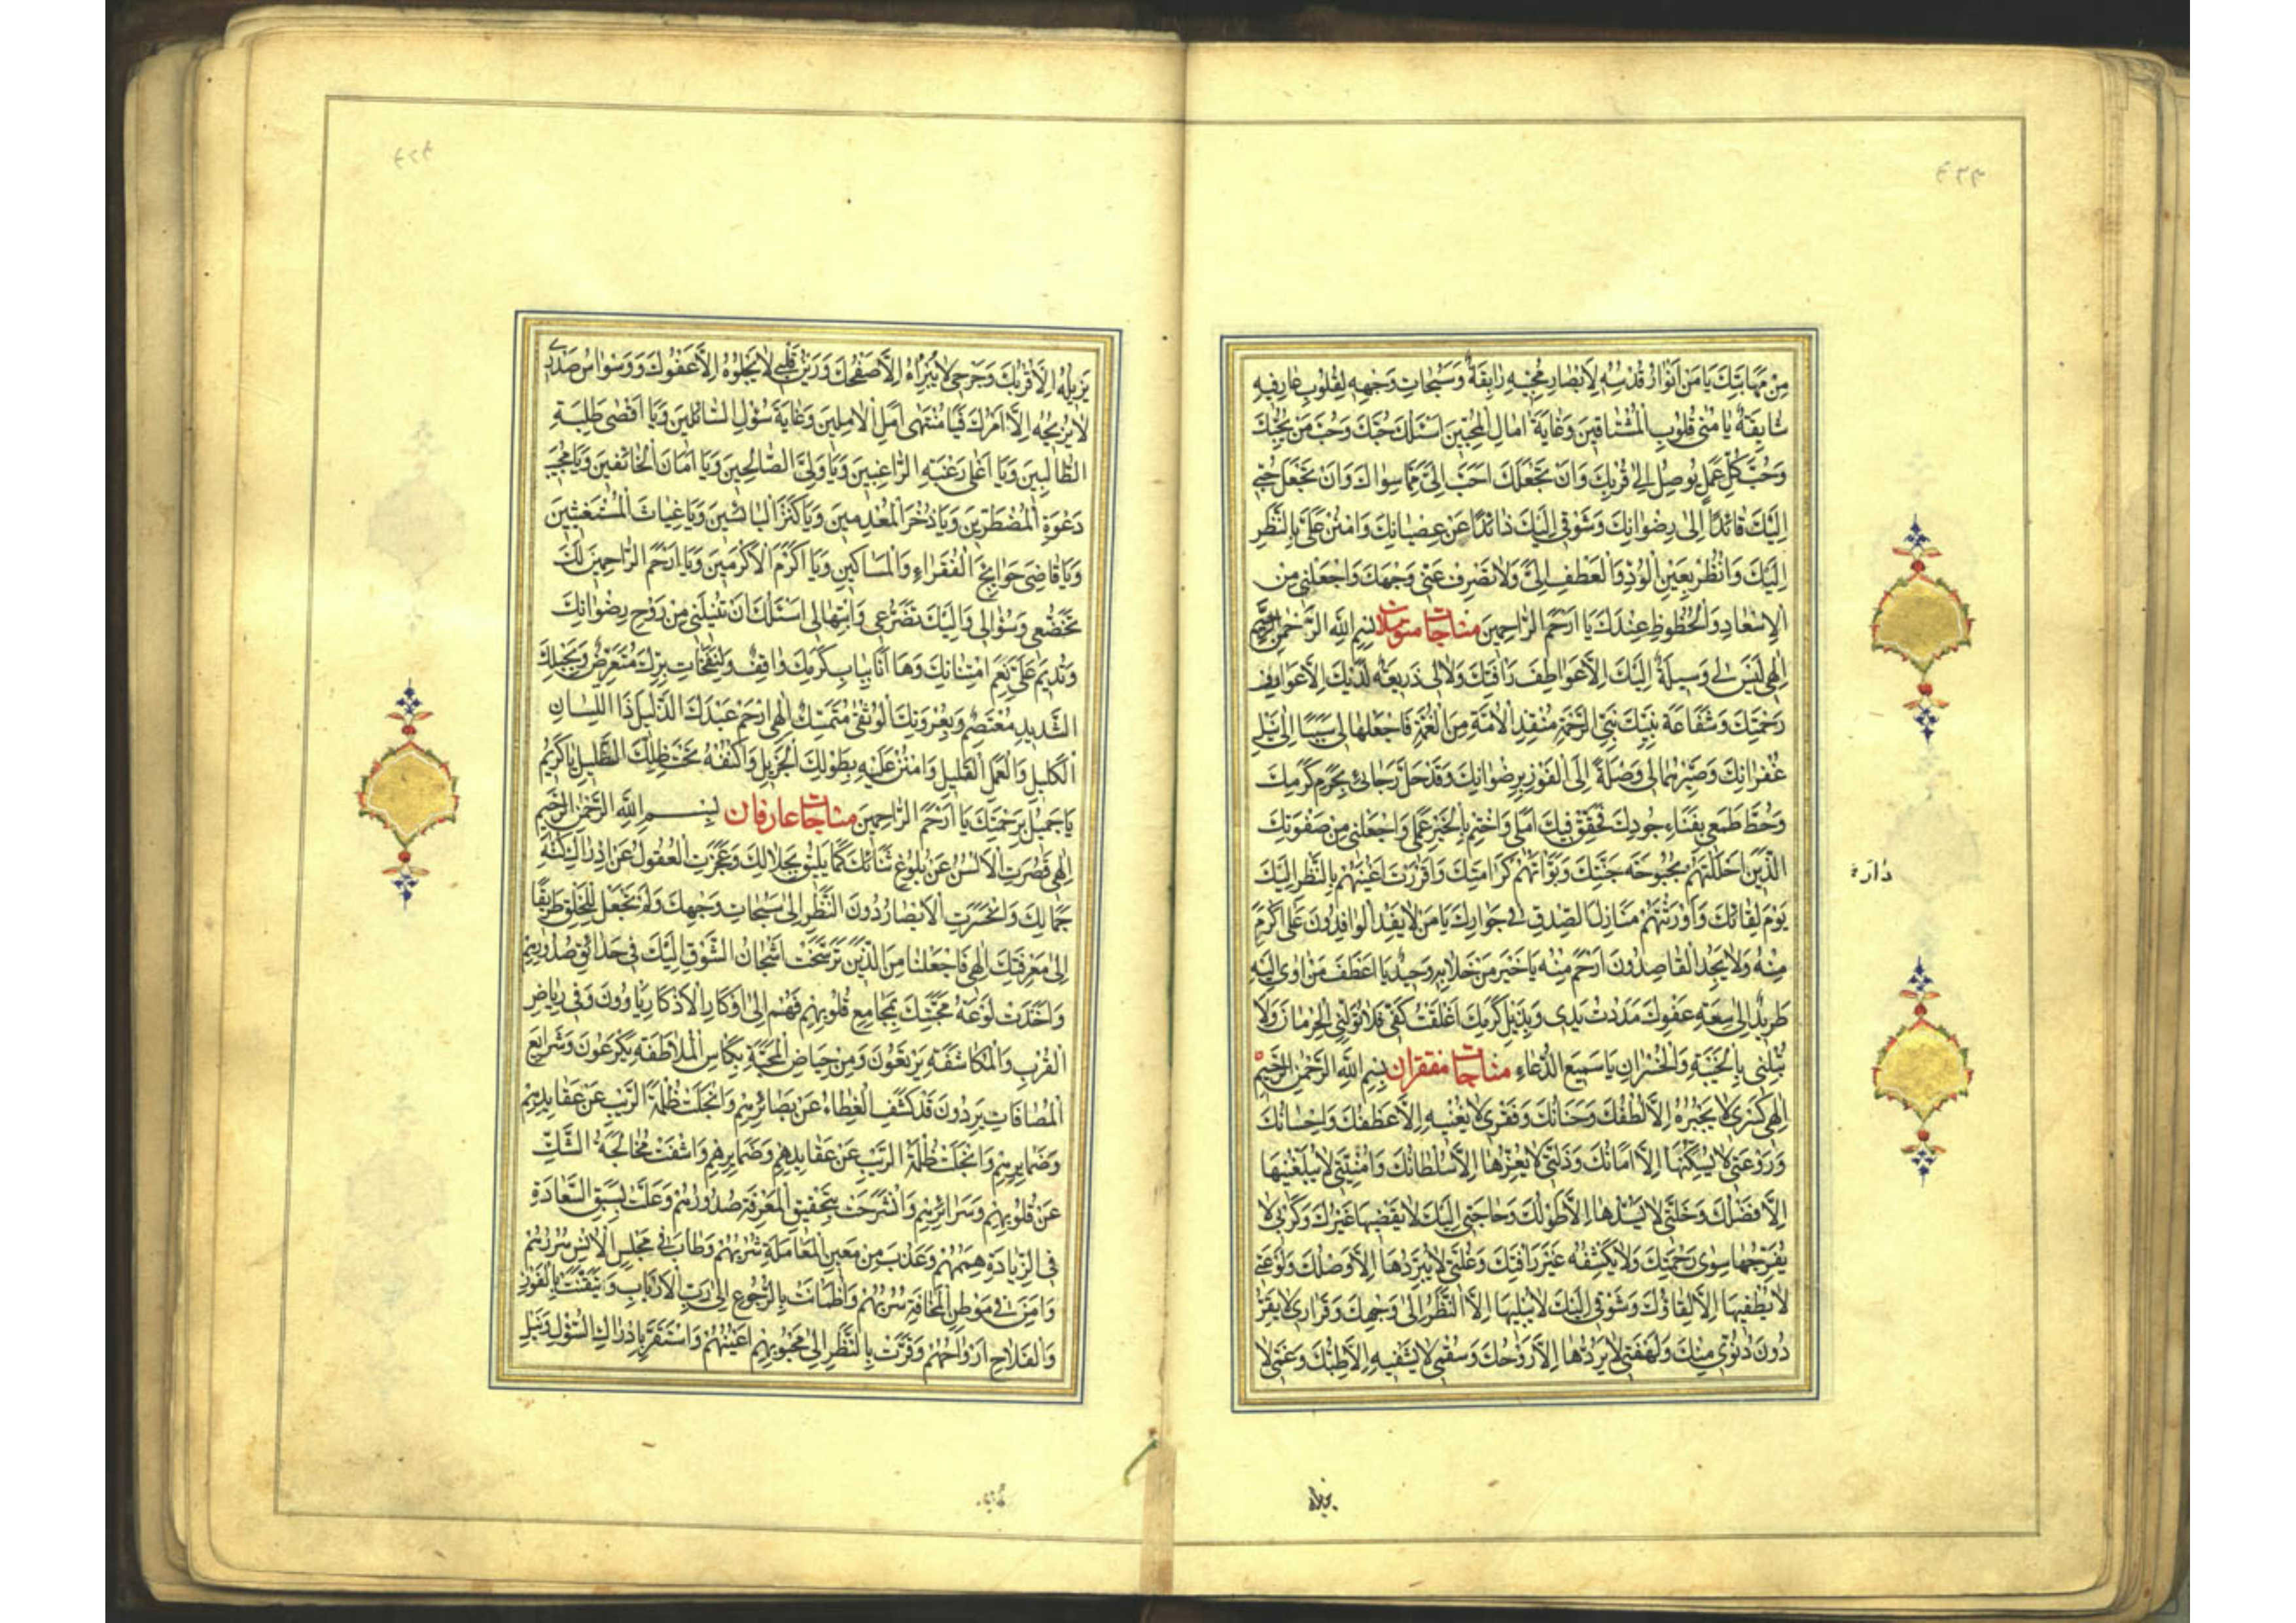 مِنْ مَهَابَتِكَ يَا مَنْ اَنْوَارُ قُدْسِهِ لِاَبْصَارِ مُحِبّيهِ رَايِقَةٌ وَسُبُحَاتِ وَجْهِهِ لِقُلُوبِ عَارِفيهِ
شَايِقَةٌ يَا مُنٰى قُلُوبِ الْمُشْتَاقينَ وَغَايَةَ اٰمَالِ الْمُحِبّينَ اَسْئَلُكَ حُبَّكَ وَحُبَّ مَنْ يُحِبُّكَ
وَحُبَّ كُلِّ عَمَلٍ يُوصِلُ اِلٰى قُرْبِكَ وَاَنْ تَجْعَلَكَ اَحَبَّ اِلَىَّ مِمَّا سِوَاكَ وَاَنْ تَجْعَلَ حُبّى
اِلَيْكَ قَائِدًا اِلٰى رِضْوَانِكَ وَشَوْقى اِلَيْكَ ذَائِدًا عَنْ عِصْيَانِكَ وَامْنُنْ عَلَىَّ بِالنَّظَرِ
اِلَيْكَ وَانْظُرْ بِعَيْنِ الْوُدِّ وَالْعَطْفِ اِلَىَّ وَلَا تَصْرِفْ عَنّى وَجْهَكَ وَاجْعَلْنى مِنْ
الْاِسْعَادِ وَالْحُظُوظِ عِنْدَكَ يَا اَرْحَمَ الرَّاحِمينَ مناجات متوسلان بِسْمِ اللهِ الرَّحْمٰنِ الرَّحيمِ
اِلٰهى لَيْسَ لى وَسيلَةٌ اِلَيْكَ اِلَّا عَوَاطِفَ رَاْفَتِكَ وَلَا لى ذَريعَةٌ لَدَيْكَ اِلَّا عَوَارِفُ
رَحْمَتِكَ وَشَفَاعَةَ نَبِيِّكَ نَبِىِّ الرَّحْمَةِ مُنْقِذِ الْاُمَّةِ مِنَ الْغُمَّةِ فَاجْعَلْهَا لى سَبَبًا اِلٰى نَيْلِ
غُفْرَانِكَ وَصَيِّرْهُمَا لى وَصْلَةً اِلَى الْفَوْزِ بِرِضْوَانِكَ وَقَدْ حَلَّ رَجَائى بِحَرَمِ كَرَمِكَ
وَحَطَّ طَمَعى بِفِنَاءِ جُودِكَ فَحَقِّقْ فيكَ اَمَلى وَاخْتِمْ بِالْخَيْرِ عَمَلى وَاجْعَلْنى مِنْ صَفْوَتِكَ
الَّذينَ اَحْلَلْتَهُمْ بُحْبُوحَةَ جَنَّتِكَ وَبَوَّاْتَهُمْ كَرَامَتِكَ وَاَقْرَرْتَ اَعْيُنَهُمْ بِالنَّظَرِ اِلَيْكَ
دٰارَة
يَوْمَ لِقَائِكَ وَاَوْرَثْتَهُمْ مَنَازِلَ الصِّدْقِ فى جِوَارِكَ يَا مَنْ لَا يَفِدُ الْوَافِدُونَ عَلٰى اَكْرَمَ
مِنْهُ وَلَا يَجِدُ الْقَاصِدُونَ اَرْحَمَ مِنْهُ يَا خَيْرَ مَنْ خَلَا بِهِ وَحيدٌ يَا اَعْطَفَ مَنْ اَوٰى اِلَيْهِ
طَريدٌ اِلٰى سِعَةِ عَفْوِكَ مَدَدْتُ يَدى وَبِذَيْلِ كَرَمِكَ اَعْلَقْتُ كَفّى فَلَا تُوَلِّنِى الْحِرْمَانَ وَلَا
تُبْلِنى بِالْخَيْبَةِ وَالْخُسْرَانِ يَا سَميعَ الدُّعَاءِ مناجات مفتقران بِسْمِ اللهِ الرَّحْمٰنِ الرَّحيمِ
اِلٰهى كَسْرى لَا يَجْبُرُهُ اِلَّا لُطْفُكَ وَحَنَانُكَ وَفَقْرى لَا يُغْنيهِ اِلَّا عَطْفُكَ وَاِحْسَانُكَ
وَرَوْعَتى لَا يُسَكِّنُهَا اِلَّا اَمَانُكَ وَذِلَّتى لَا يُعِزُّهَا اِلَّا سُلْطَانُكَ وَاُمْنِيَّتى لَا يُبَلِّغُنيهَا
اِلَّا فَضْلُكَ وَخَلَّتى لَا يَسُدُّهَا اِلَّا طَوْلُكَ وَحَاجَتى اِلَيْكَ لَا يَقْضيهَا غَيْرُكَ وَكَرْبى لَا
يُفَرِّجُهَا سِوٰى رَحْمَتِكَ وَلَا يَكْشِفُهُ غَيْرُ رَاْفَتِكَ وَغُلَّتى لَا يُبَرِّدُهَا اِلَّا وَصْلُكَ وَلَوْعَتى
لَا يُطْفيهَا اِلَّا لِقَاؤُكَ وَشَوْقى اِلَيْكَ لَا يَبُلُّهَا اِلَّا النَّظَرُ اِلٰى وَجْهِكَ وَقَرَارى لَا يَقِرُّ
دُونَ دُنُوّى مِنْكَ وَلَهْفَتى لَا يَرُدُّهَا اِلَّا رَوْحُكَ وَسُقْمى لَا يَشْفيهِ اِلَّا طِبُّكَ وَغَمّى لَا
يزيله
يُزيلُهُ اِلَّا قُرْبُكَ وَجَرْحى لَا يُبْرِاُهُ اِلَّا صَفْحُكَ وَرَيْنُ قَلْبى لَا يَجْلُوهُ اِلَّا عَفْوُكَ وَوَسْوَاسُ صَدْرى
لَا يُزيحُهُ اِلَّا اَمْرُكَ فَيَا مُنْتَهٰى اَمَلِ الْاٰمِلينَ وَغَايَةَ سُؤْلِ السَّائِلينَ وَيَا اَقْصٰى طَلِبَةِ
الطَّالِبينَ وَيَا اَعْلٰى رَغْبَةِ الرَّاغِبينَ وَيَا وَلِىَّ الصَّالِحينَ وَيَا اَمَانَ الْخَائِفينَ وَيَا مُجيبَ
دَعْوَةِ الْمُضْطَرّينَ وَيَا ذُخْرَ الْمُعْدِمينَ وَيَا كَنْزَ الْبَائِسينَ وَيَا غِيَاثَ الْمُسْتَغيثينَ
وَيَا قَاضِىَ حَوَايِجِ الْفُقَرَاءِ وَالْمَسَاكينِ وَيَا اَكْرَمَ الْاَكْرَمينَ وَيَا اَرْحَمَ الرَّاحِمينَ لَكَ
تَخَضُّعى وَسُؤَالى وَاِلَيْكَ تَضَرُّعى وَابْتِهَالى اَسْئَلُكَ اَنْ تُنيلَنى مِنْ رَوْحِ رِضْوَانِكَ
وَتُديمَ عَلَىَّ نِعَمَ امْتِنَانِكَ وَهَا اَنَا بِبَابِ كَرَمِكَ وَاقِفٌ وَلِنَفَحَاتِ بِرِّكَ مُتَعَرِّضٌ وَبِحَبْلِكَ
الشَّديدِ مُعْتَصِمٌ وَبِعُرْوَتِكَ الْوُثْقٰى مُتَمَسِّكٌ اِلٰهى ارْحَمْ عَبْدَكَ الذَّليلَ ذَا اللِّسَانِ
الْكَليلِ وَالْعَمَلِ الْقَليلِ وَامْنُنْ عَلَيْهِ بِطَوْلِكَ الْجَزيلِ وَاكْنُفْهُ تَحْتَ ظِلِّكَ الظَّليلِ يَا كَريمُ
يَا جَميلُ بِرَحْمَتِكَ يَا اَرْحَمَ الرَّاحِمينَ مناجات عارفان بِسْمِ اللهِ الرَّحْمٰنِ الرَّحيمِ
اِلٰهى قَصُرَتِ الْاَلْسُنُ عَنْ بُلُوغِ ثَنَائِكَ كَمَا يَليقُ بِجَلَالِكَ وَعَجَزَتِ الْعُقُولُ عَنْ اِدْرَاكِ كُنْهِ
جَمَالِكَ وَانْحَسَرَتِ الْاَبْصَارُ دُونَ النَّظَرِ اِلٰى سُبُحَاتِ وَجْهِكَ وَلَمْ تَجْعَلْ لِلْخَلْقِ طَريقًا
اِلٰى مَعْرِفَتِكَ اِلٰهى فَاجْعَلْنَا مِنَ الَّذينَ تَرَسَّخَتْ اَشْجَانُ الشَّوْقِ اِلَيْكَ فى حَدَائِقِ صُدُورِهِمْ
وَاَخَذَتْ لَوْعَةُ مَحَبَّتِكَ بِمَجَامِعِ قُلُوبِهِمْ فَهُمْ اِلٰى اَوْكَارِ الْاَذْكَارِ يَاْوُونَ وَفى رِيَاضِ
الْقُرْبِ وَالْمُكَاشَفَةِ يَرْتَعُونَ وَمِنْ حِيَاضِ الْمَحَبَّةِ بِكَاْسِ الْمُلَاطَفَةِ يَكْرَعُونَ وَشَرَايِعَ
الْمُصَافَاتِ يَرِدُونَ قَدْ كُشِفَ الْغِطَاءُ عَنْ بَصَائِرِهِمْ وَانْجَلَتْ ظُلْمَةُ الرَّيْبِ عَنْ عَقَايِدِهِمْ
وَضَمَايِرِهِمْ وَانْجَلَتْ ظُلْمَةُ الرَّيْبِ عَنْ عَقَايِدِهِمْ وَضَمَايِرِهِمْ وَانْتَفَتْ مُخَالَجَةُ الشَّكِّ
عَنْ قُلُوبِهِمْ وَسَرَائِرِهِمْ وَانْشَرَحَتْ بِتَحْقيقِ الْمَعْرِفَةِ صُدُورُهُمْ وَعَلَتْ لِسَبْقِ السَّعَادَةِ
فِى الزِّيَادَةِ هِمَمُهُمْ وَعَذُبَ مِنْ مَعينِ الْمُعَامَلَةِ شُرْبُهُمْ وَطَابَ فى مَجْلِسِ الْاُنْسِ سِرُّهُمْ
وَاَمِنَ فى مَوْطِنِ الْمَخَافَةِ سِرْبُهُمْ وَاطْمَاَنَّتْ بِالرُّجُوعِ اِلٰى رَبِّ الْاَرْبَابِ وَتَيَقَّنَتْ بِالْفَوْزِ
وَالْفَلَاحِ اَرْوَاحُهُمْ وَقَرَّتْ بِالنَّظَرِ اِلٰى مَحْبُوبِهِمْ اَعْيُنُهُمْ وَاسْتَقَرَّ بِاِدْرَاكِ السُّؤْلِ وَنَيْلِ